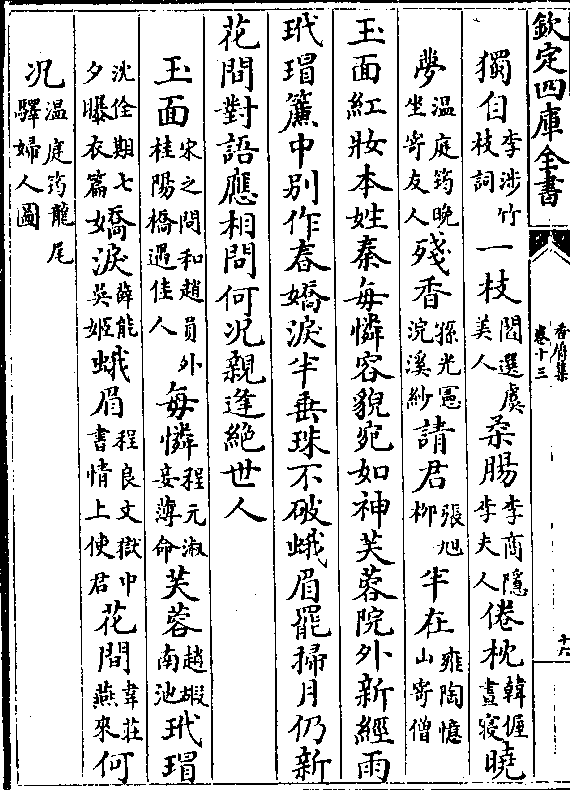 欽定四庫全書
香屑集
卷十三
十六
獨自李涉竹枝詞一枝閻選虞美人柔腸李商隱李夫人倦枕韓偓晝寢曉
夢溫庭筠晚坐寄友人殘香孫光憲浣溪紗請君張旭柳半在雍陶憶山寄僧
玉面紅妝本姓秦每憐容貌宛如神芙蓉院外新經雨
玳瑁簾中別作春嬌淚半垂珠不破蛾眉罷掃月仍新
花間對語應相問何况親逢絕世人
玉面宋之問和趙員外桂陽橋遇佳人每憐程元淑妾薄命芙蓉趙嘏南池玳瑁
沈佺期七夕曝衣篇嬌淚薛能吳姬蛾眉程良文獄中書情上使君花間韋莊燕來何
况溫庭筠龍尾驛婦人圖